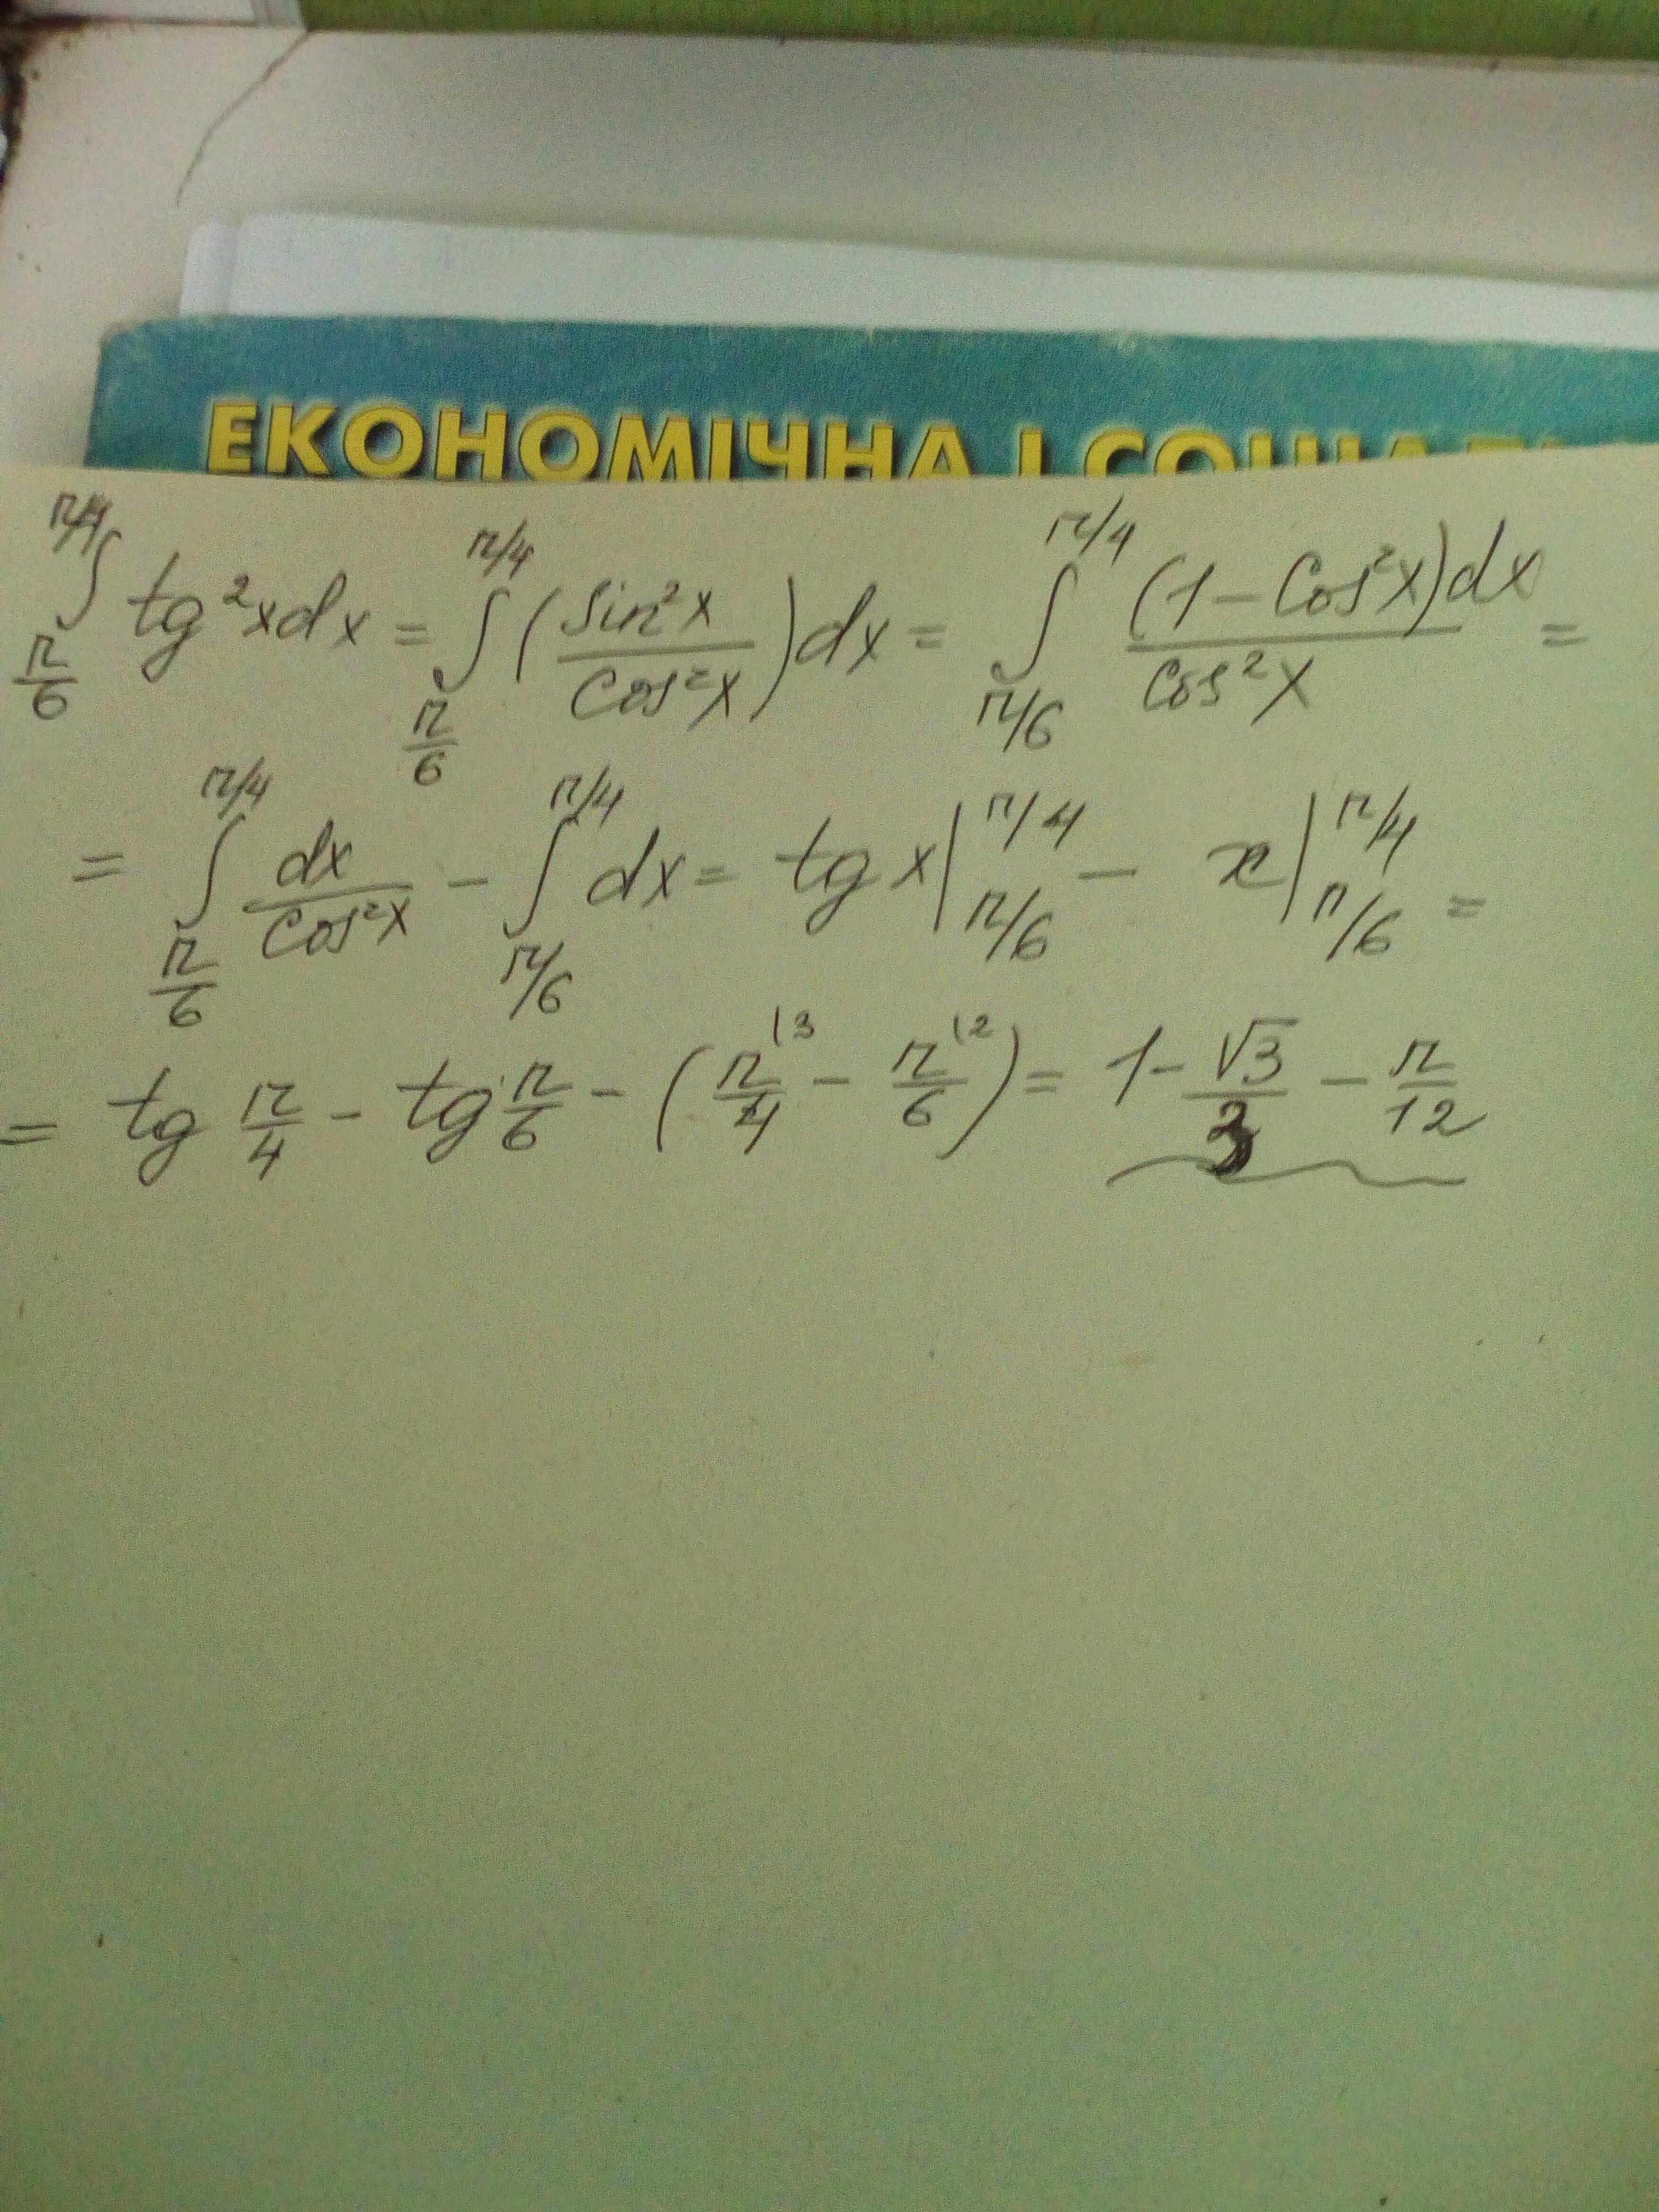 ЕКОНОМІЧНА І СОЦІАЛЬ
∫_{π/6}^{π/4} tg²xdx = ∫_{π/6}^{π/4} (sin²x/cos²x)dx = ∫_{π/6}^{π/4} (1-cos²x)dx/cos²x =
= ∫_{π/6}^{π/4} dx/cos²x - ∫_{π/6}^{π/4} dx = tg x|_{π/6}^{π/4} - x|_{π/6}^{π/4} =
= tg π/4 - tg π/6 - (π/4 \3 - π/6 \2) = 1 - √3/3 - π/12